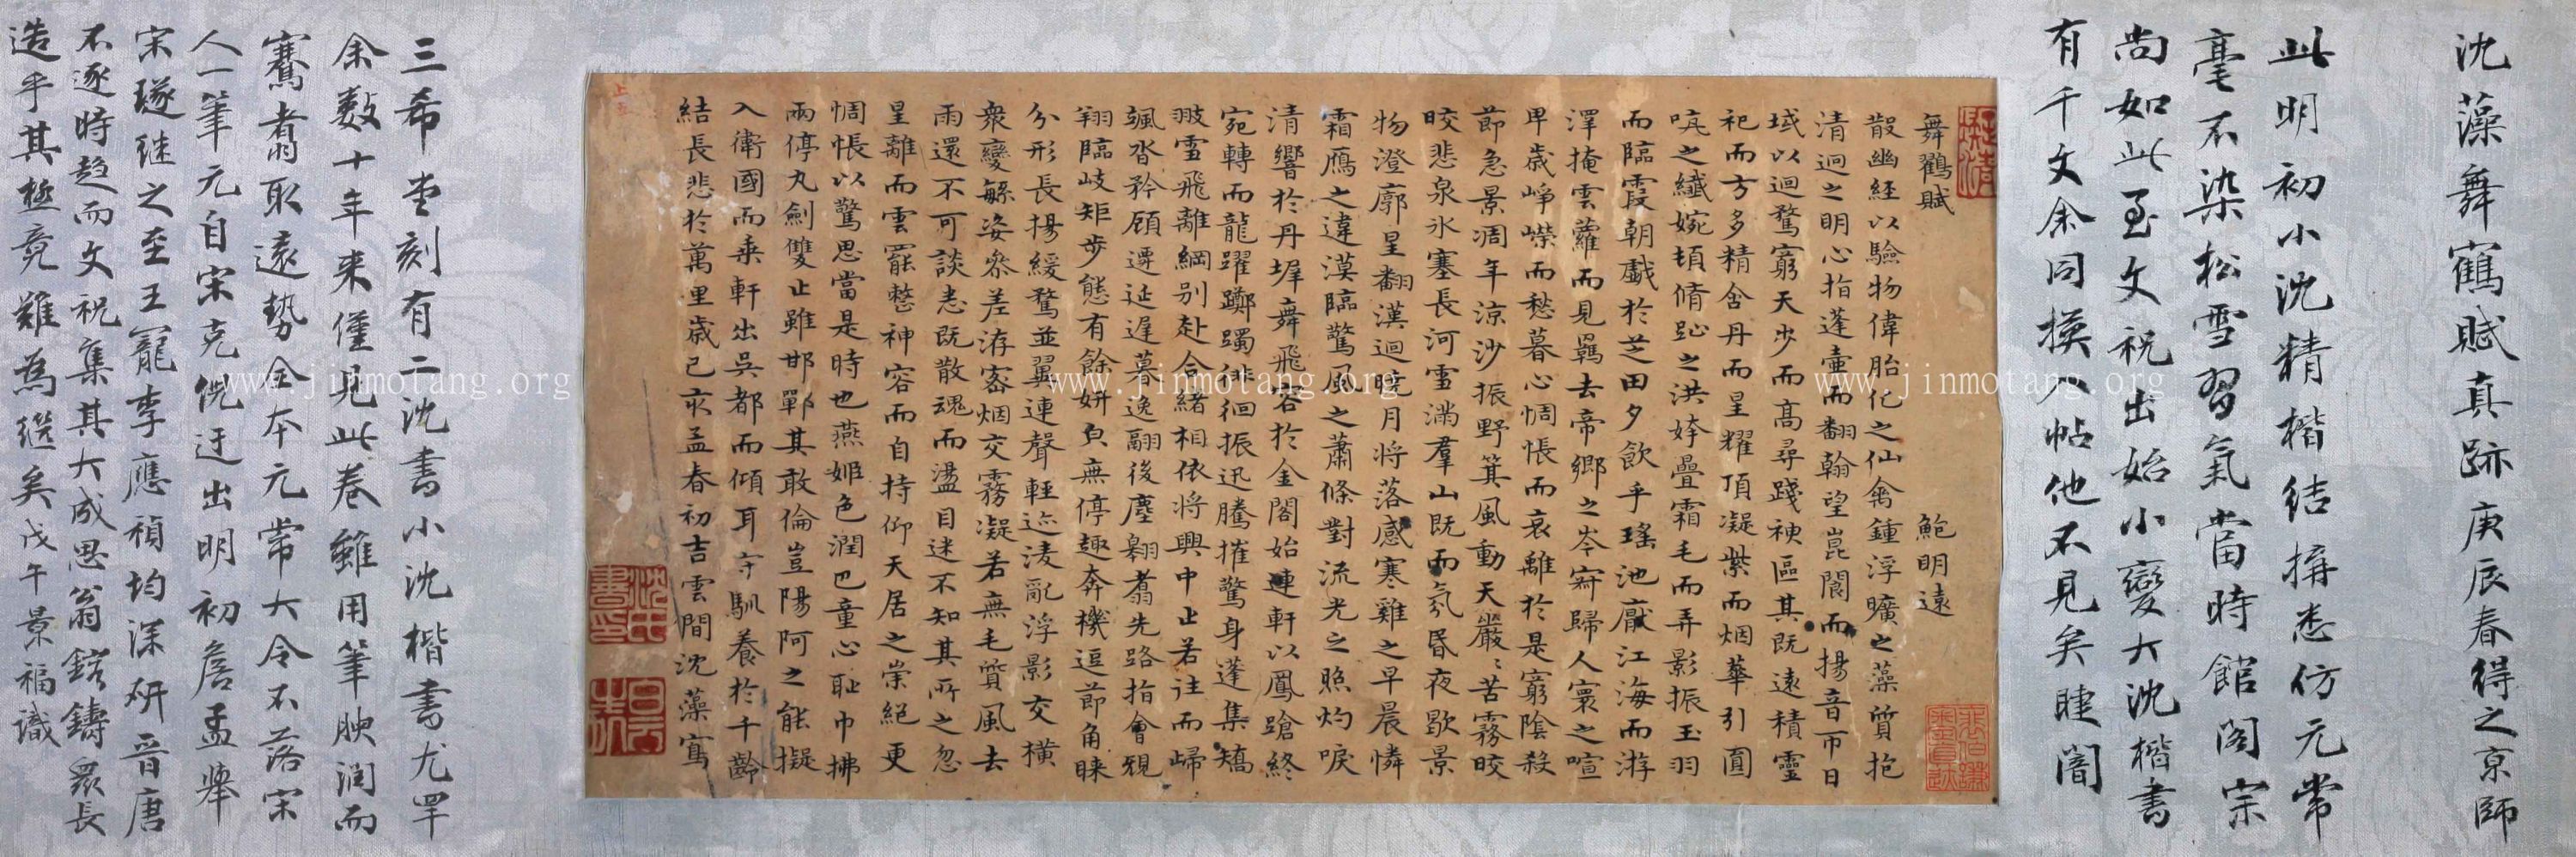 沈藻舞鶴賦真跡庚辰春得之京師
此明初小沈精楷結搆悉仿元常
毫不染松雪習氣當時館閣宗
尚如此至文祝出始小變大沈楷書
有千文余同換八帖他不見矣睫闇
舞鸖賦 鮑明遠
散幽經以驗物偉胎化之仙禽鍾浮曠之藻質抱
清迥之明心指蓬壷而翻翰望崑閬而揚音帀日
域以迴騖窮天步而髙尋踐神區其既遠積靈
祀而方多精含丹而星耀頂凝紫而烟華引圓
吭之纎婉頓脩趾之洪姱疊霜毛而弄影振玉羽
而臨霞朝戲於芝田夕飲乎瑤池厭江海而游
澤掩雲蘿而見羈去帝鄉之岑寂歸人寰之喧
卑歲崢嶸而愁暮心惆悵而哀離於是窮陰殺
節急景凋年涼沙振野箕風動天嚴嚴苦霧皎
皎悲泉氷塞長河雪滿羣山既而氛昏夜歇景
物澄廓星翻漢迴曉月將落感寒雞之早晨憐
霜鴈之違漠臨驚風之蕭條對流光之照灼唳
清響於丹墀舞飛容於金閣始連軒以鳳蹌終
宛轉而龍躍躑躅徘徊振迅騰摧驚身蓬集矯
翅雪飛離綱别赴合緒相依將興中止若往而歸
颯沓矜顧遷延遲暮逸翮後塵翱翥先路指會規
翔臨岐矩步態有餘妍貟無停趣奔機逗節角睞
分形長揚緩騖並翼連聲輕迹淩亂浮影交横
衆變繁姿叅差洊密烟交霧凝若無毛質風去
雨還不可談悉既散魂而盪目迷不知其所之忽
星離而雲罷整神容而自持仰天居之崇絕更
惆悵以驚思當是時也燕姬色潤巴童心耻巾拂
兩停丸劍雙止雖邯鄲其敢倫豈陽阿之能擬
入衛國而乘軒出吳都而傾耳守馴養於千齡
結長悲於萬里歲已亥孟春初吉雲間沈藻寫
沈氏書印
三希堂刻有二沈書小沈楷書尤罕
余數十年來僅見此卷雖用筆腴潤而
騫翥取遠勢全本元常大令不落宋
人一筆元自宋克俛迂出明初詹孟舉
宋璲继之至王寵李應禎均深研晋唐
不逐時趋而文祝集其大成思翁鎔鑄衆長
造乎其極竟難為繼矣戊午景福識
www.jinmotang.org
www.jinmotang.org
www.jinmotang.org